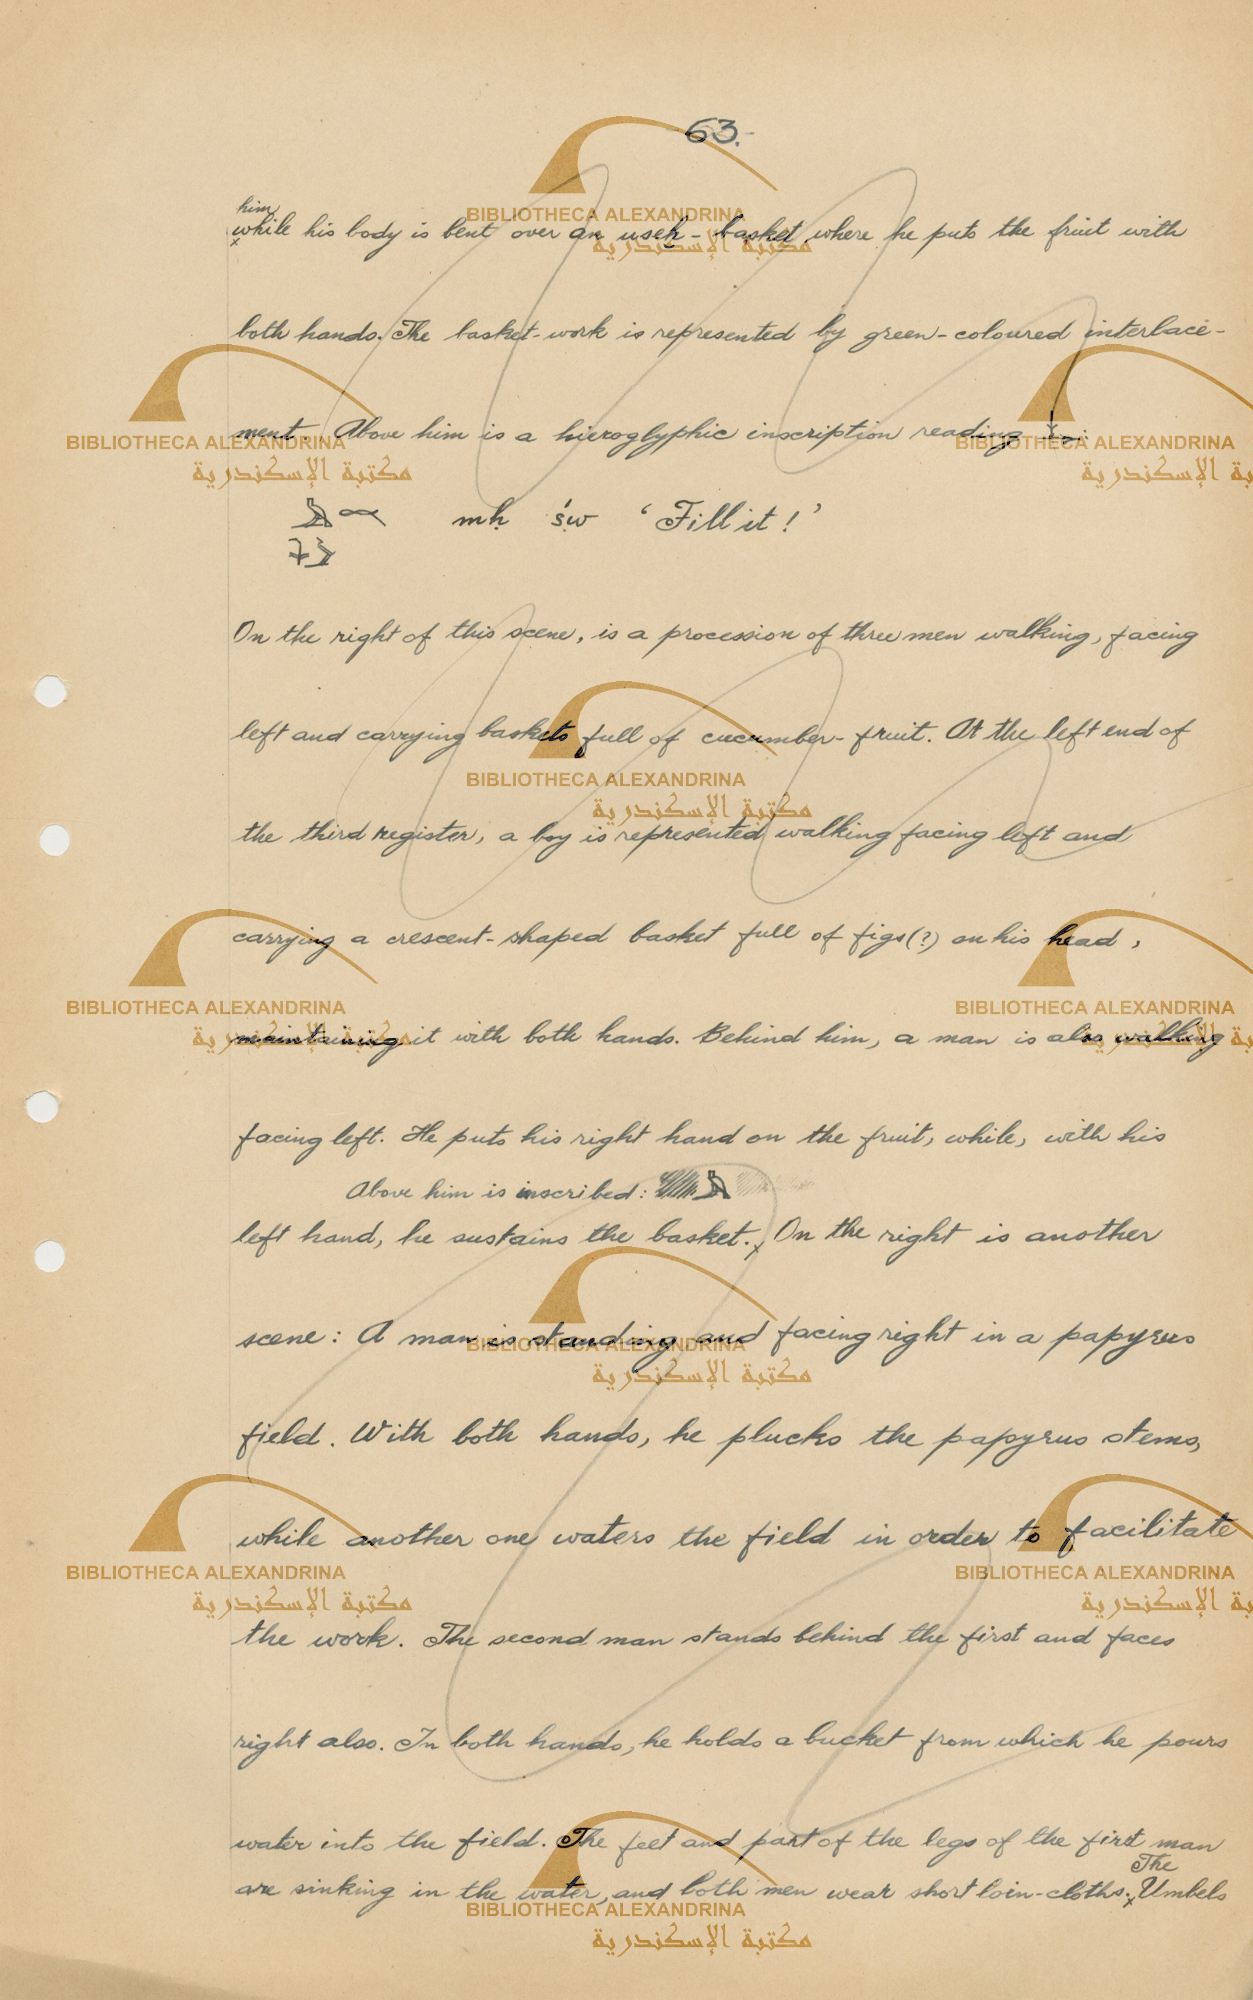 63.-
him
while his body is bent over an useh - basket where he puts the fruit with
both hands. The basket-work is represented by green-coloured interlace-
ment. Above him is a hieroglyphic inscription reading
mḥ św ‘Fill it!’
On the right of this scene, is a procession of three men walking, facing
left and carrying baskets full of cucumber-fruit. At the left end of
the third register, a boy is represented walking facing left and
carrying a crescent-shaped basket full of figs(?) on his head,
maintaining it with both hands. Behind him, a man is also walking
facing left. He puts his right hand on the fruit, while, with his
Above him is inscribed:
left hand, he sustains the basket. On the right is another
scene: A man is standing and facing right in a papyrus
field. With both hands, he plucks the papyrus stems,
while another one waters the field in order to facilitate
the work. The second man stands behind the first and faces
right also. In both hands, he holds a bucket from which he pours
water into the field. The feet and part of the legs of the first man
The
are sinking in the water, and both men wear short loin-cloths. Umbels
BIBLIOTHECA ALEXANDRINA
مكتبة الإسكندرية